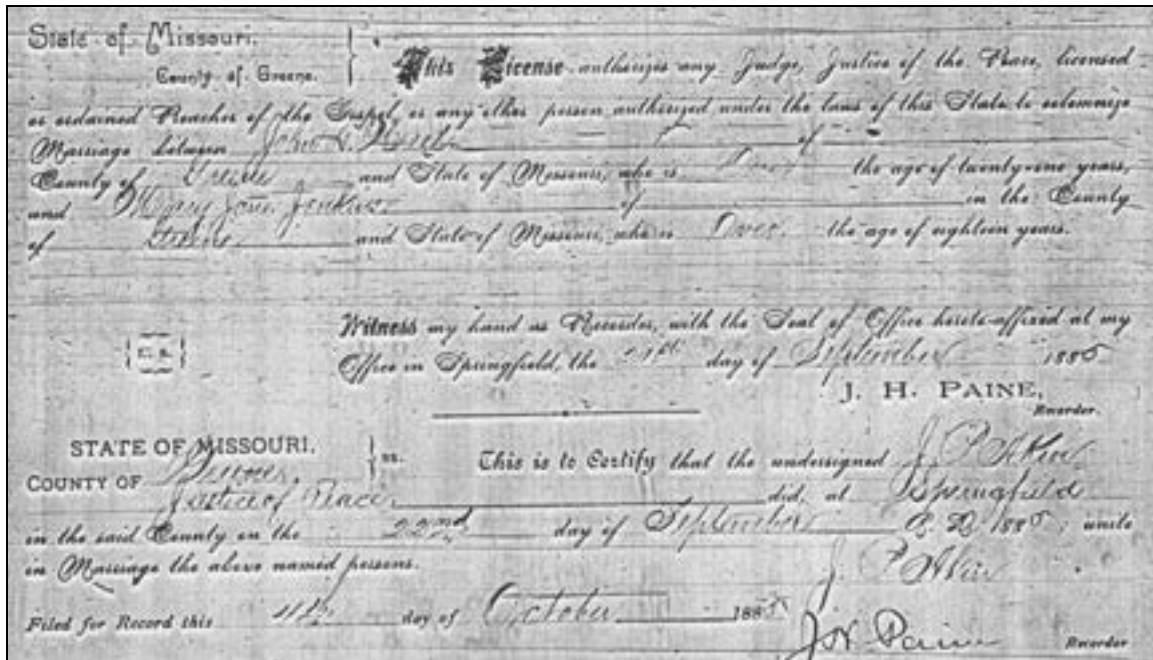 State of Missouri.
County of Greene. This License authorizes any Judge, Justice of the Peace, licensed
or ordained Preacher of the Gospel, or any other person authorized under the laws of this State to solemnize
Marriage between John of
County of Greene and State of Missouri, who is Over the age of twenty-one years,
and Mary Jane Jenkins of in the County
of Greene and State of Missouri, who is Over the age of eighteen years.
Witness my hand as Recorder, with the Seal of Office hereto affixed at my
Office in Springfield, the day of September 1885
J. H. PAINE,
Recorder.
STATE OF MISSOURI.
COUNTY OF Greene ss. This is to Certify that the undersigned J. P.
Justice of Peace did, at Springfield
in the said County on the 22nd day of September A. D. 1885, unite
in Marriage the above named persons.
J. P.
Filed for Record this 4th day of October 1885
J. H. Paine Recorder